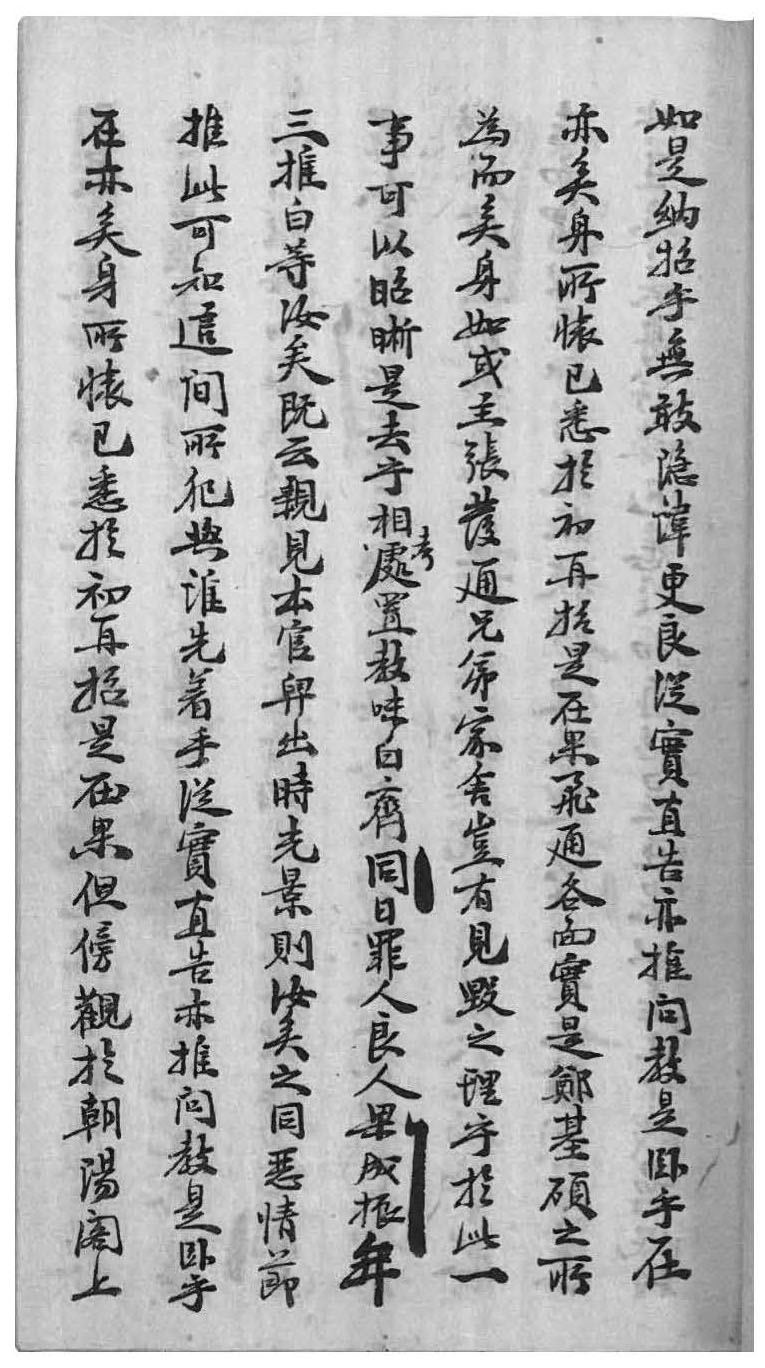 如是納招乎無敢隐諱更良從實直告亦推問教是臥乎在
亦矣身所懐已悉於初再招是在果飛通各面實是鄭基碩之所
為而矣身如或主張發通兄弟家舍豈有見毁之理乎於此一
事可以昭晰是去乎相考處置教味白齊同日罪人良人果成振年
三推白等汝矣旣云親見本官舁出時光景則汝矣之同惡情節
推此可知這间所犯與誰先着手從實直告亦推问教是臥乎
在亦矣身所懐已悉於初再招是在果但傍觀於朝陽阁上